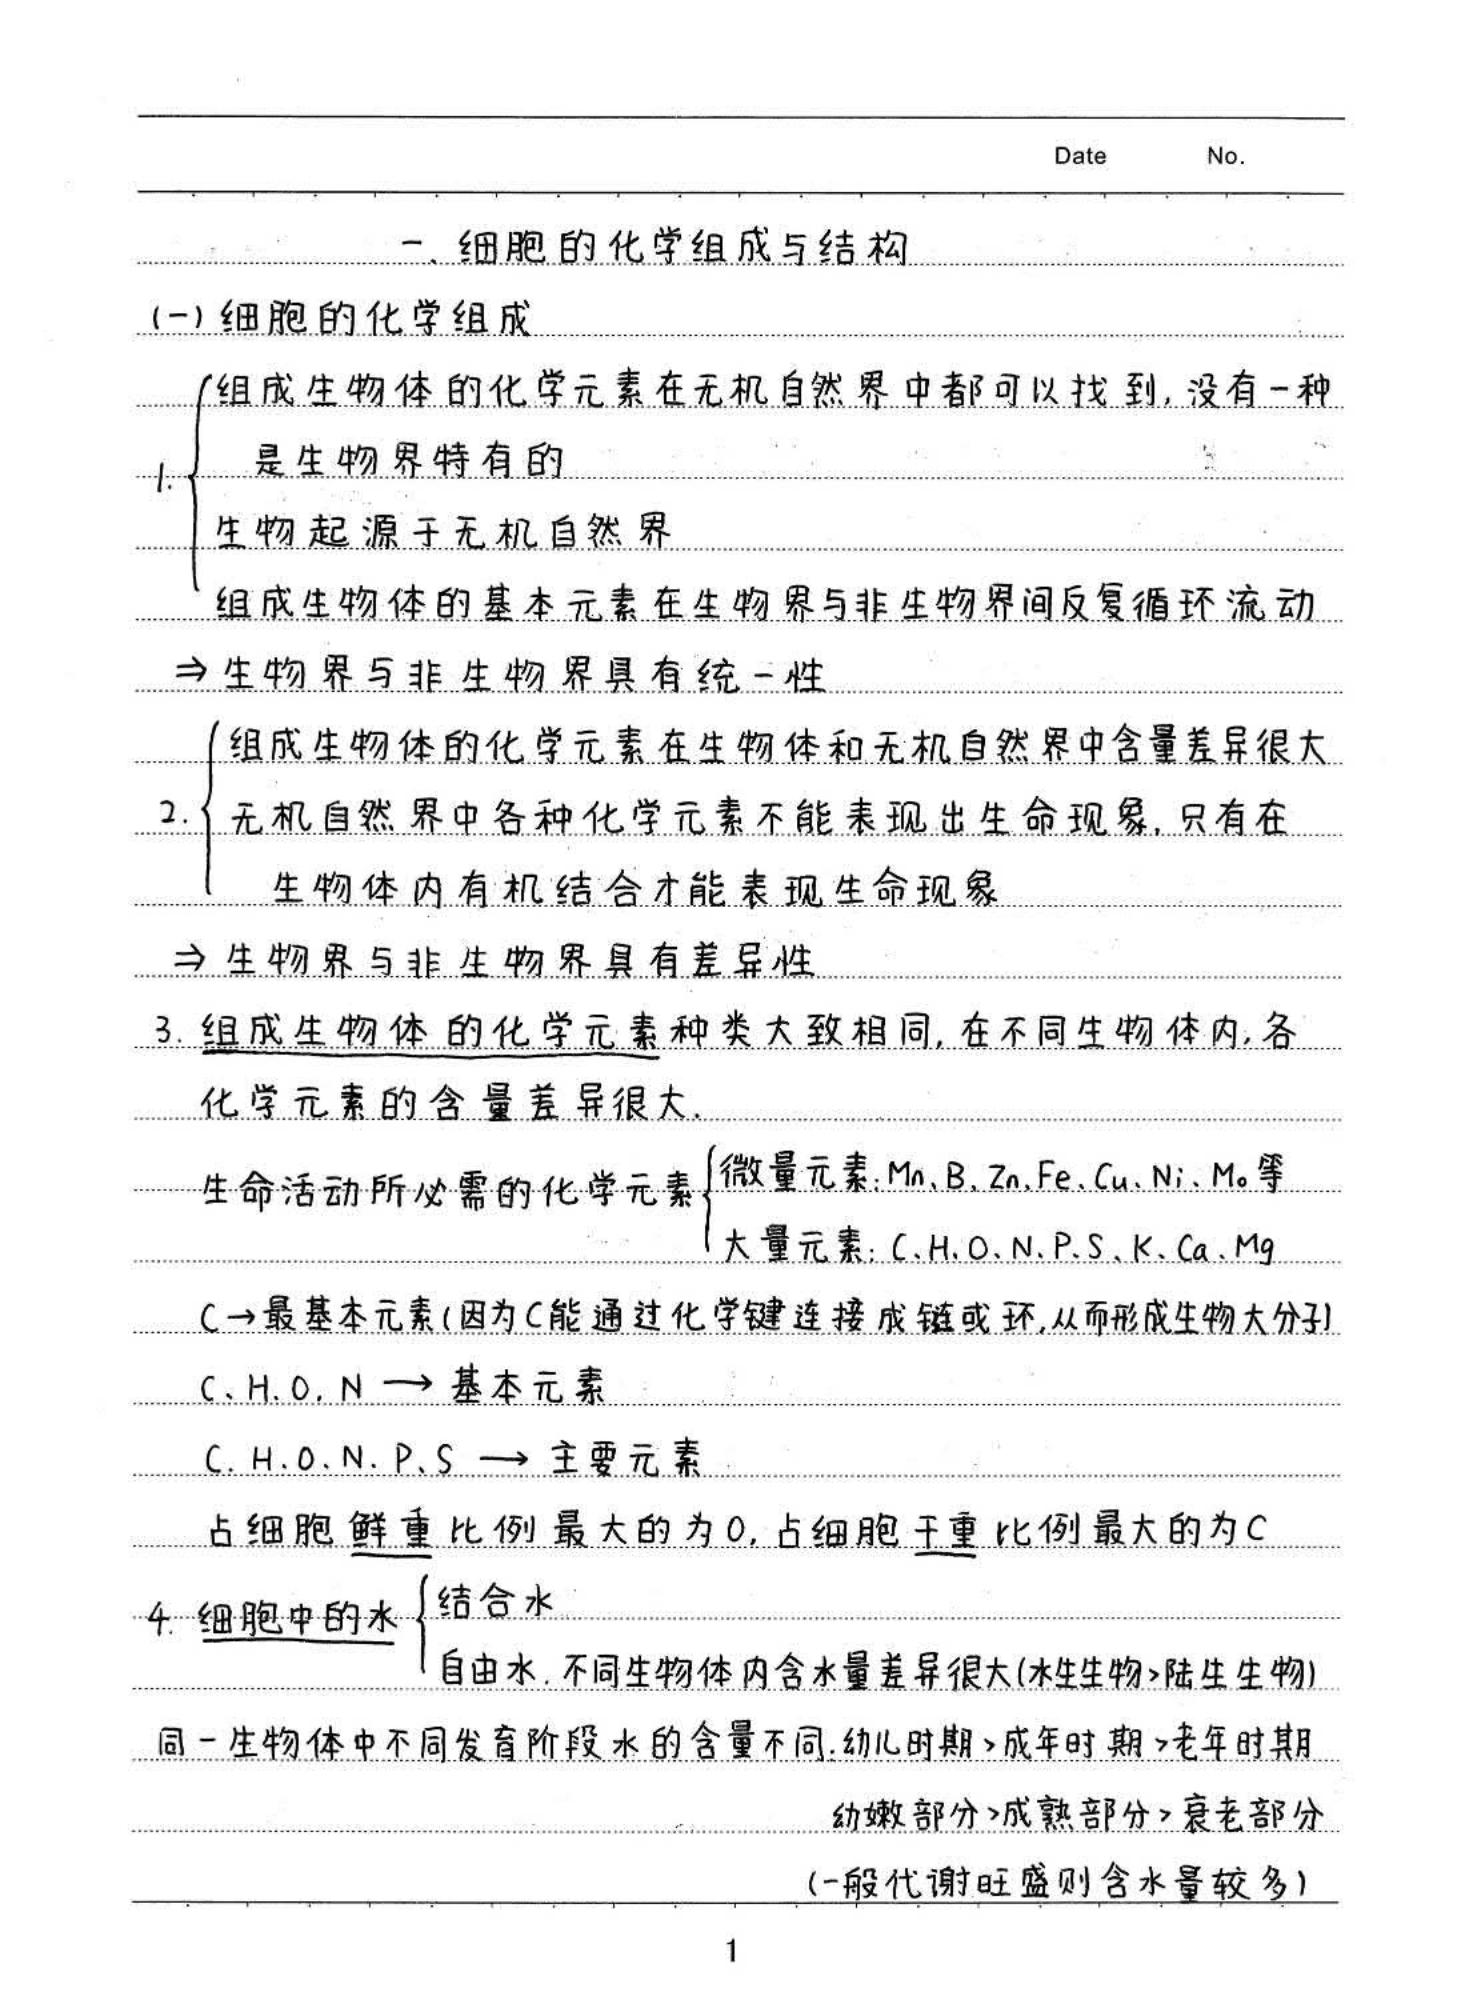 Date No.
一、细胞的化学组成与结构
(一)细胞的化学组成
组成生物体的化学元素在无机自然界中都可以找到,没有一种
是生物界特有的
1.
生物起源于无机自然界
组成生物体的基本元素在生物界与非生物界间反复循环流动
⇒生物界与非生物界具有统一性
组成生物体的化学元素在生物体和无机自然界中含量差异很大
2. 无机自然界中各种化学元素不能表现出生命现象,只有在
生物体内有机结合才能表现生命现象
⇒生物界与非生物界具有差异性
3. 组成生物体的化学元素种类大致相同,在不同生物体内,各
化学元素的含量差异很大.
生命活动所必需的化学元素 微量元素:Mn、B、Zn、Fe、Cu、Ni、Mo等
大量元素:C、H、O、N、P、S、K、Ca、Mg
C→最基本元素(因为C能通过化学键连接成链或环,从而形成生物大分子)
C、H、O、N→基本元素
C、H、O、N、P、S→主要元素
占细胞鲜重比例最大的为O,占细胞干重比例最大的为C
4. 细胞中的水 结合水
自由水.不同生物体内含水量差异很大(水生生物>陆生生物)
同一生物体中不同发育阶段水的含量不同.幼儿时期>成年时期>老年时期
幼嫩部分>成熟部分>衰老部分
(一般代谢旺盛则含水量较多)
1